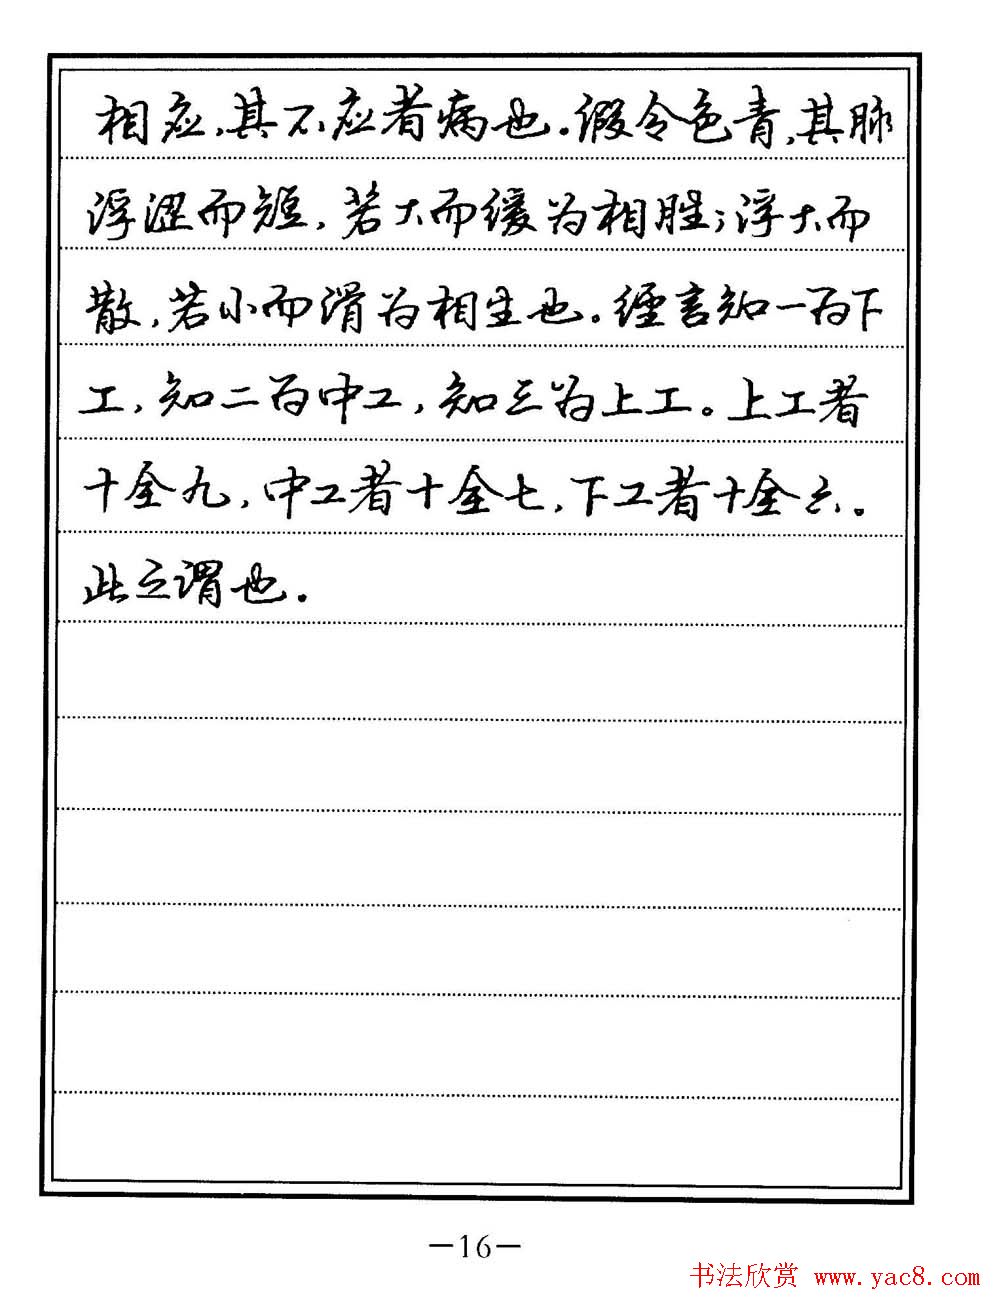 相应,其不应者病也.假令色青,其脉
浮涩而短,若大而缓为相胜;浮大而
散,若小而滑为相生也。经言知一为下
工,知二为中工,知三为上工。上工者
十全九,中工者十全七,下工者十全六。
此之谓也.
—16—
书法欣赏 www.yac8.com